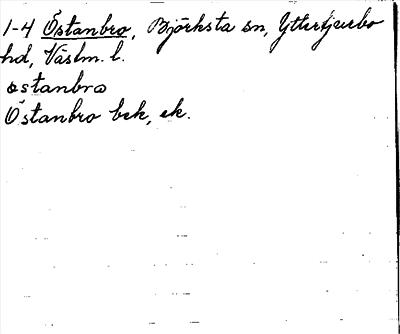 1-4 Östanbro, Björksta sn, Yttertjurbo
hd, Västm. l.
östanbro
Östanbro bek, ek.